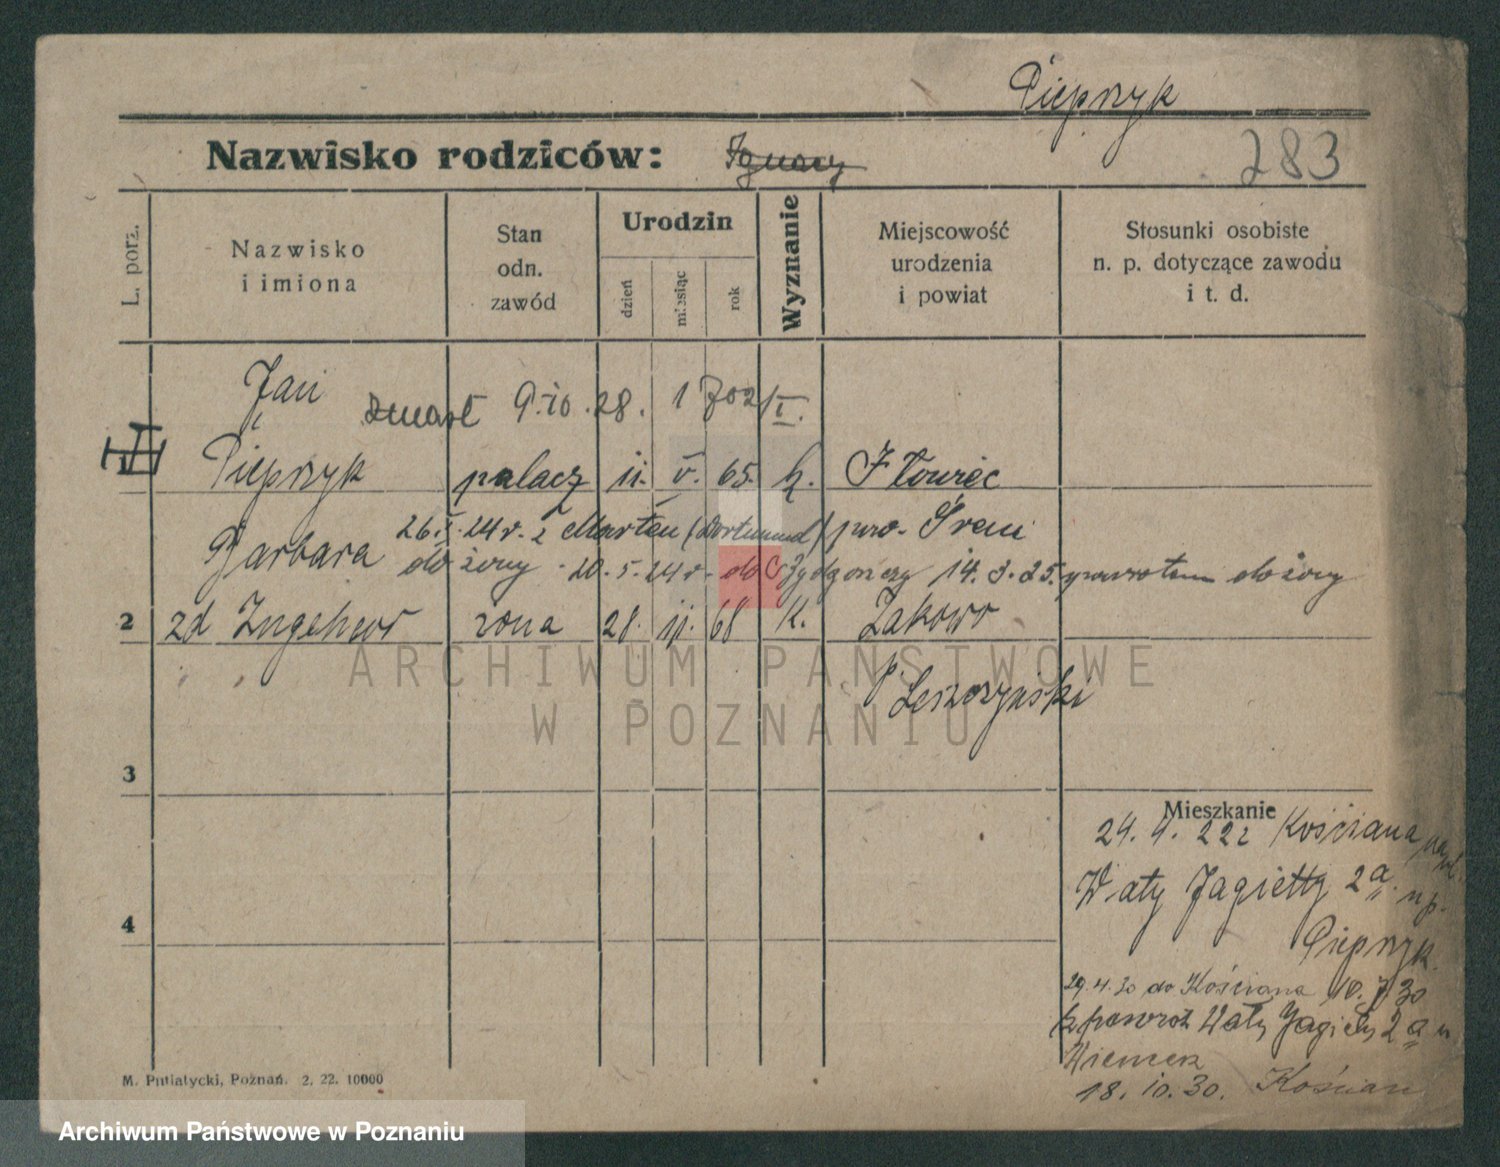 Pieprzyk
Nazwisko rodziców: Ignacy
283
L. porz.
Nazwisko
i imiona
Stan
odn.
zawód
Urodzin
dzień
miesiąc
rok
Wyznanie
Miejscowość
urodzenia
i powiat
Stosunki osobiste
n. p. dotyczące zawodu
i t. d.
Jan
zmarł 9.10.28. 1702/I.
Pieprzyk palacz 11. V. 65. k. Iłowiec
26.X.24 r. z Marten (Dortmund) pow. Śrem
Barbara do żony 20.5.24 r. do Bydgoszczy 14.3.25. powrotem do żony
2 zd żona 28. 11. 68 k. Żakowo
p. Leszczyński
3
Mieszkanie
24.4.22 z Kościana
Wały Jagiełły 2a np.
4
Pieprzyk.
29.4.30 do Kościana 10.7.30
z powrot Wały Jagiełły 2a u
18.10.30. Kościan
M. Putiatycki, Poznań. 2. 22. 10000
ARCHIWUM PAŃSTWOWE
W POZNANIU
Archiwum Państwowe w Poznaniu